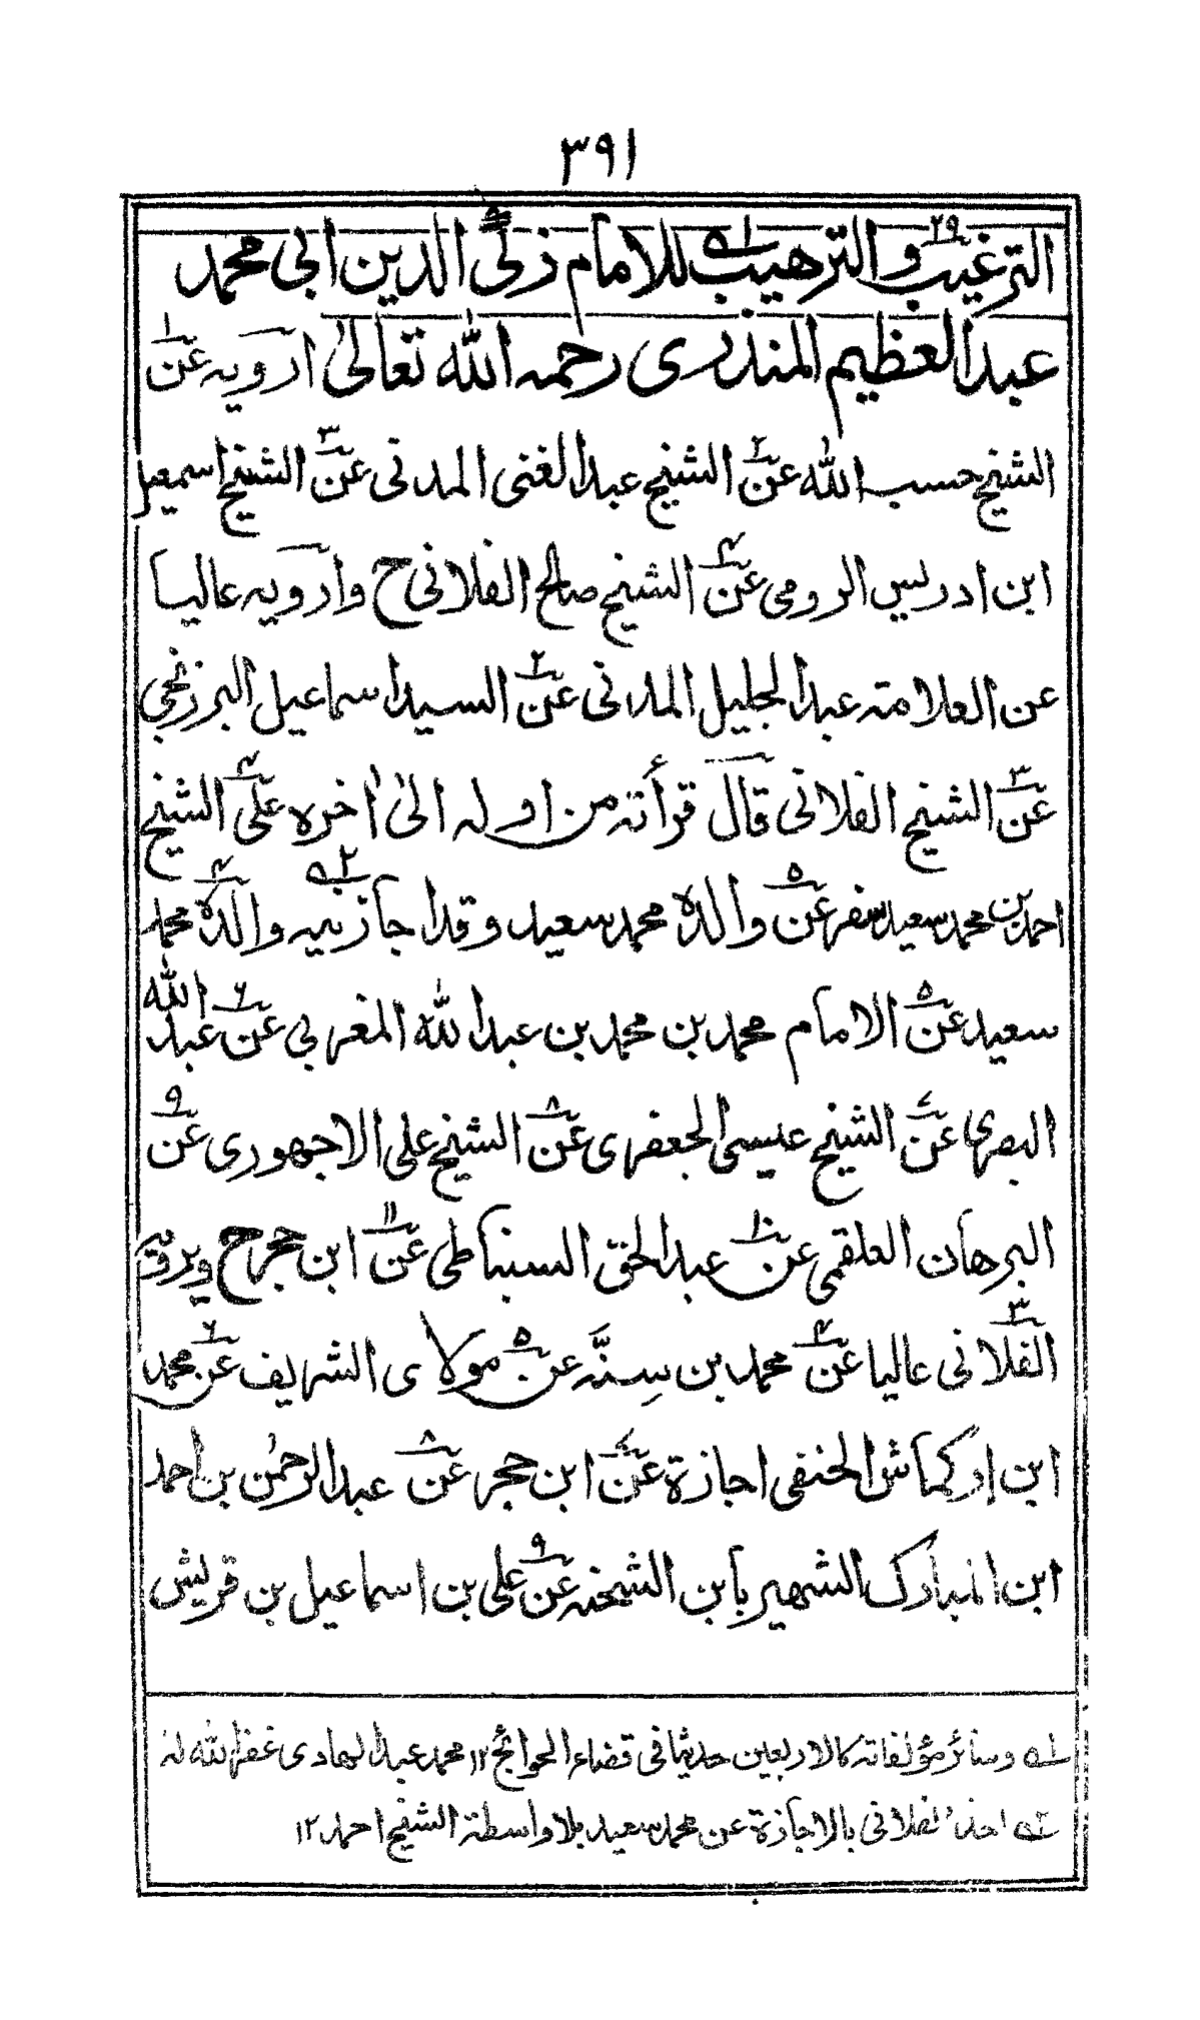 ٣٩١
الترغيب والترهيب للامام زكي الدين ابي محمد
عبد العظيم المنذري رحمه الله تعالىٰ ارويه عن
الشيخ حسب الله عن الشيخ عبد الغنى المدنى عن الشيخ اسمعيل
ابن ادريس الرومى عن الشيخ صالح الفلانى ح وارويه عاليا
عن العلامة عبد الجليل المدنى عن السيد اسماعيل البرزنجي
عن الشيخ الفلانى قال قرأته من اوله الىٰ اٰخره على الشيخ
احمد بن محمد سعيد سفر عن والده محمد سعيد وقد اجازنيه والده محمد
سعيد عن الامام محمد بن محمد بن عبد الله المغربي عن عبد الله
البصرى عن الشيخ عيسى الجعفرى عن الشيخ على الاجهورى عن
البرهان العلقمى عن عبد الحق السنباطى عن ابن حجر ح ويرويه
الفلانى عاليا عن محمد بن سِنَّه عن مولاى الشريف عن محمد
ابن إركماش الحنفى اجازة عن ابن حجر عن عبد الرحمٰن بن احمد
ابن المبارك الشهير بابن الشيخه عن على بن اسماعيل بن قريش
١ـه وسائر مؤلفاته كالاربعين حديثا فى قضاء الحوائج ١٢ محمد عبد الهادى غفر الله له
٢ـه اخذ الفلانى بالاجازة عن محمد سعيد بلا واسطة الشيخ احمد ١٢